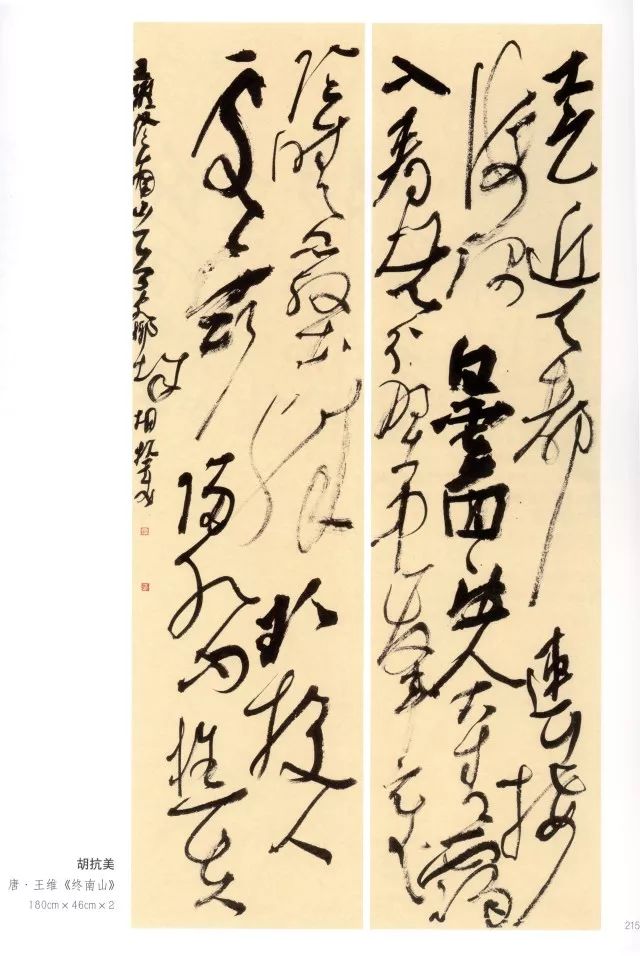 太乙近天都連山接
海隅白雲回望合青靄
入看無分野中峰變
陰晴眾壑殊欲投人
處宿隔水問樵夫
王維終南山
胡抗美
唐·王维《终南山》
180cm×46cm×2
215